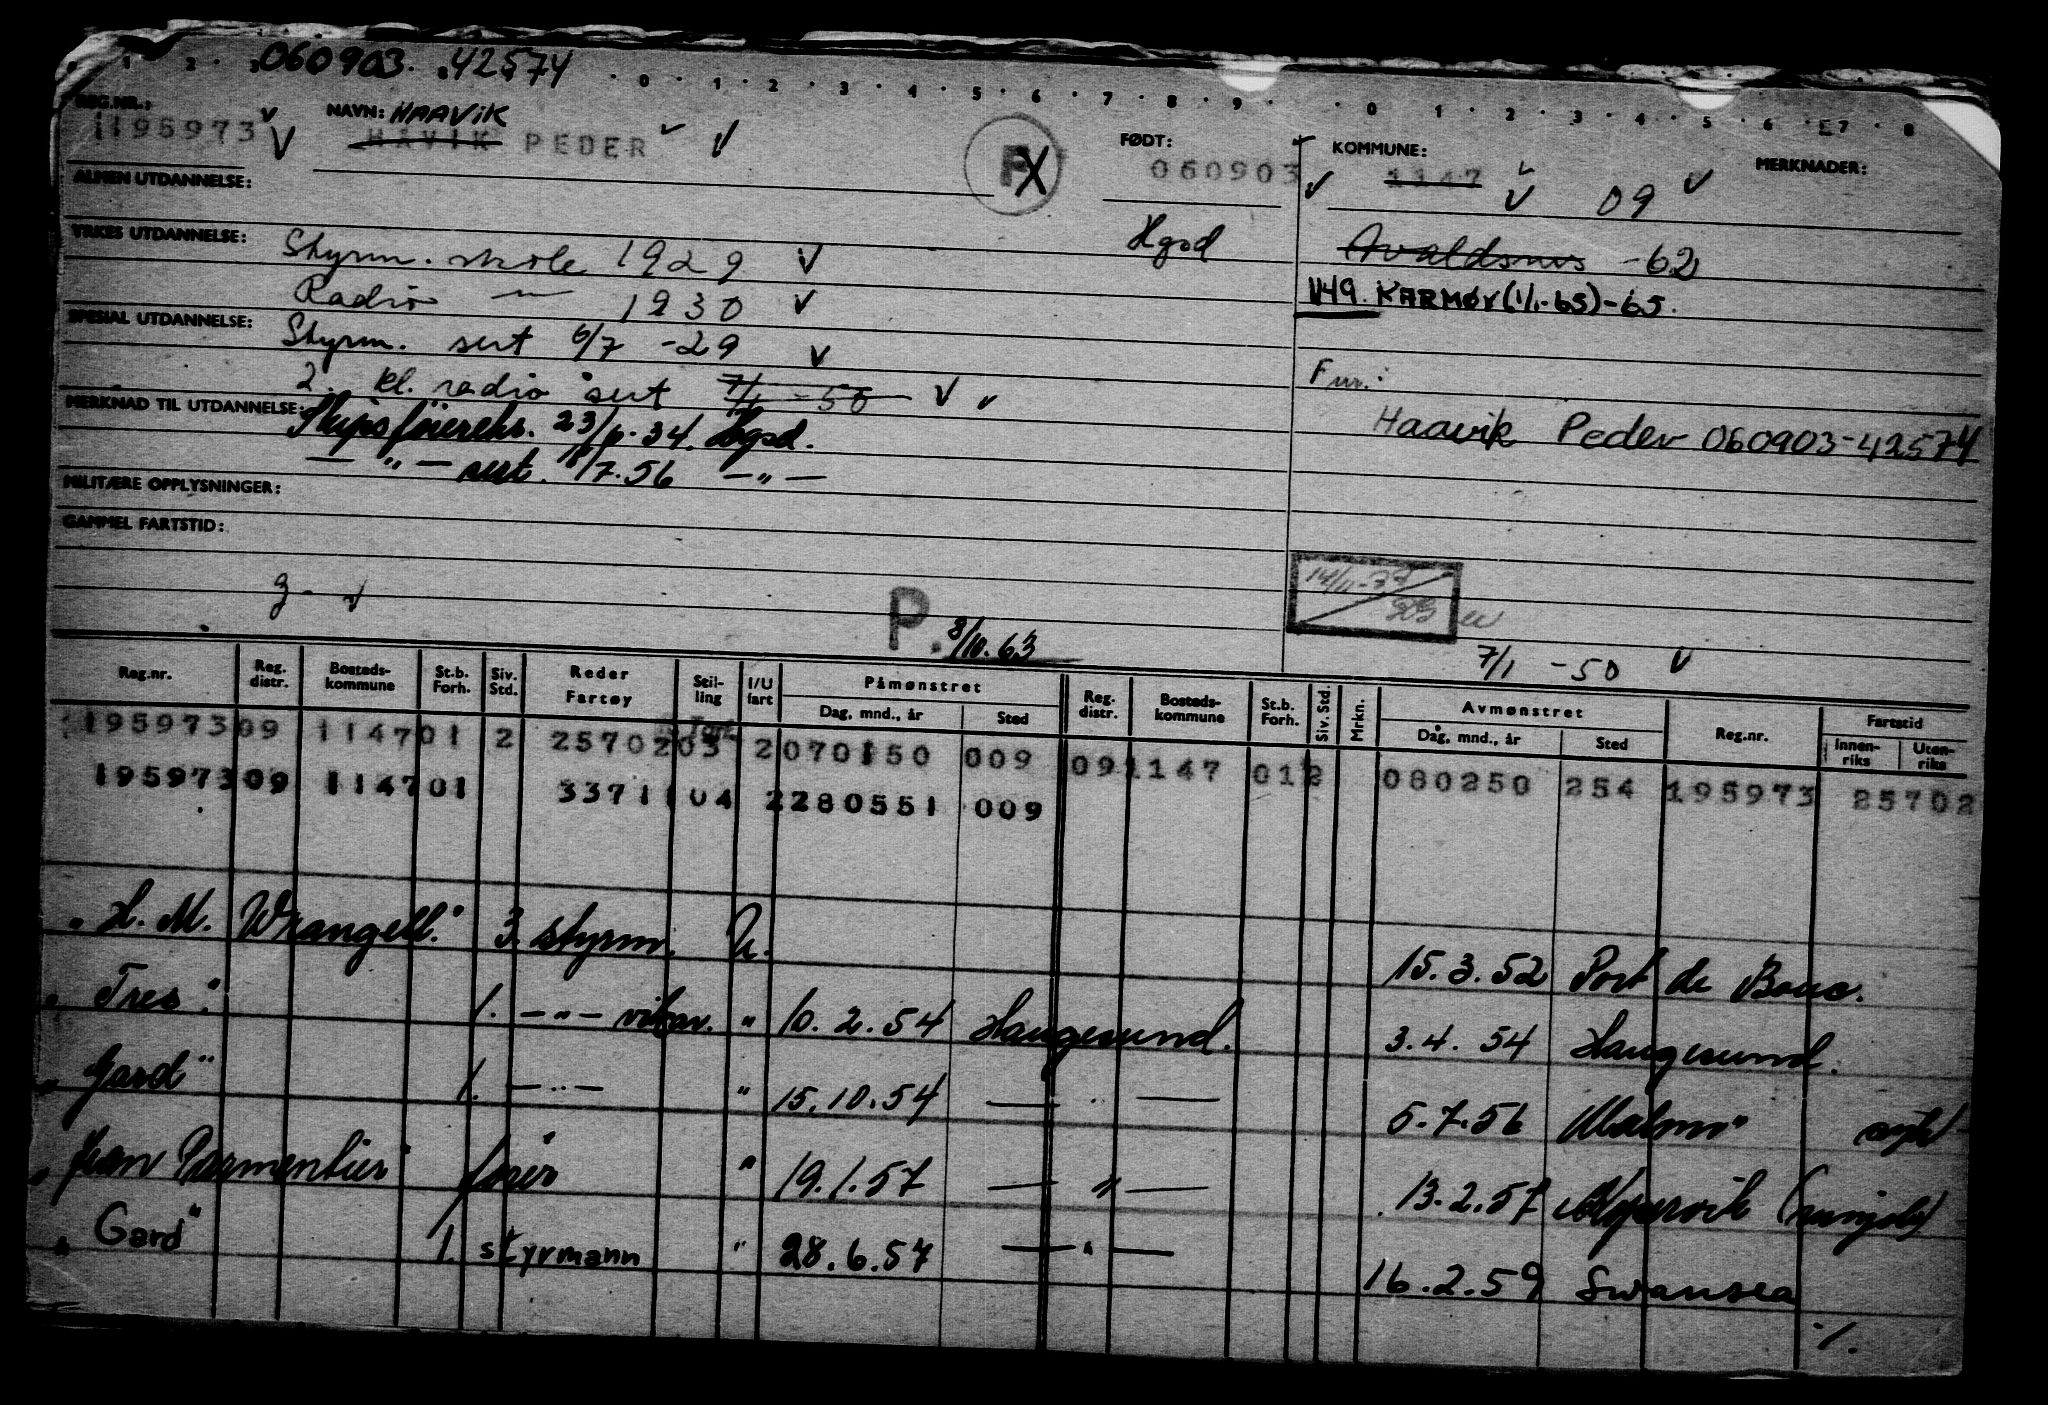 060903 42574
1 2 3 0 1 2 3 4 5 6 7 8 9 0 1 2 3 4 5 6 7 8
REG.NR.: 195973 NAVN: HAAVIK HAVIK PEDER FØDT: 060903 KOMMUNE: 1147 09 MERKNADER:
ALMEN UTDANNELSE: Hgsd Avaldsnes -62
YRKES UTDANNELSE: Styrm. skole 1929
1149 KARMØY (1/1-65)-65.
Radio — " — 1930
SPESIAL UTDANNELSE: Styrm. sert 6/7 -29
2. kl. radio sert 7/1 -50
MERKNAD TIL UTDANNELSE: Skipsførereks. 23/6-34. Hgsd.
Haavik Peder 060903-42574
— " — sert. 18/7.56 — " —
MILITÆRE OPPLYSNINGER:
GAMMEL FARTSTID:
P. 8/10.63
7/1 -50
Reg.nr. Reg. distr. Bosteds-kommune St.b. Forh. Siv. Std. Reder Fartøy Stil-ling I/U fart Påmønstret Dag, mnd., år Sted Reg. distr. Bosteds-kommune St.b. Forh. Siv. Std. Mrkn. Avmønstret Dag, mnd., år Sted Reg.nr. Fartstid Innen-riks Uten-riks
195973 09 1147 01 2 25702 03 2 070150 009 09 1147 01 2 080250 254 195973 25702
195973 09 1147 01 3371 04 2 280551 009
"H. M. Wrangell." 3 styrm. U. 15.3.52 Port de Bouc.
"Tres". 1. — " — vikar. " 10.2.54 Haugesund. 3.4.54 Haugesund.
"Gard" 1. — " — " 15.10.54 — " — 5.7.56 Malmø
"Jean Parmentier" fører " 19.1.57 — " — 13.2.57 Kopervik
"Gard" 1. styrmann " 28.6.57 — " — 16.2.59 Swansea